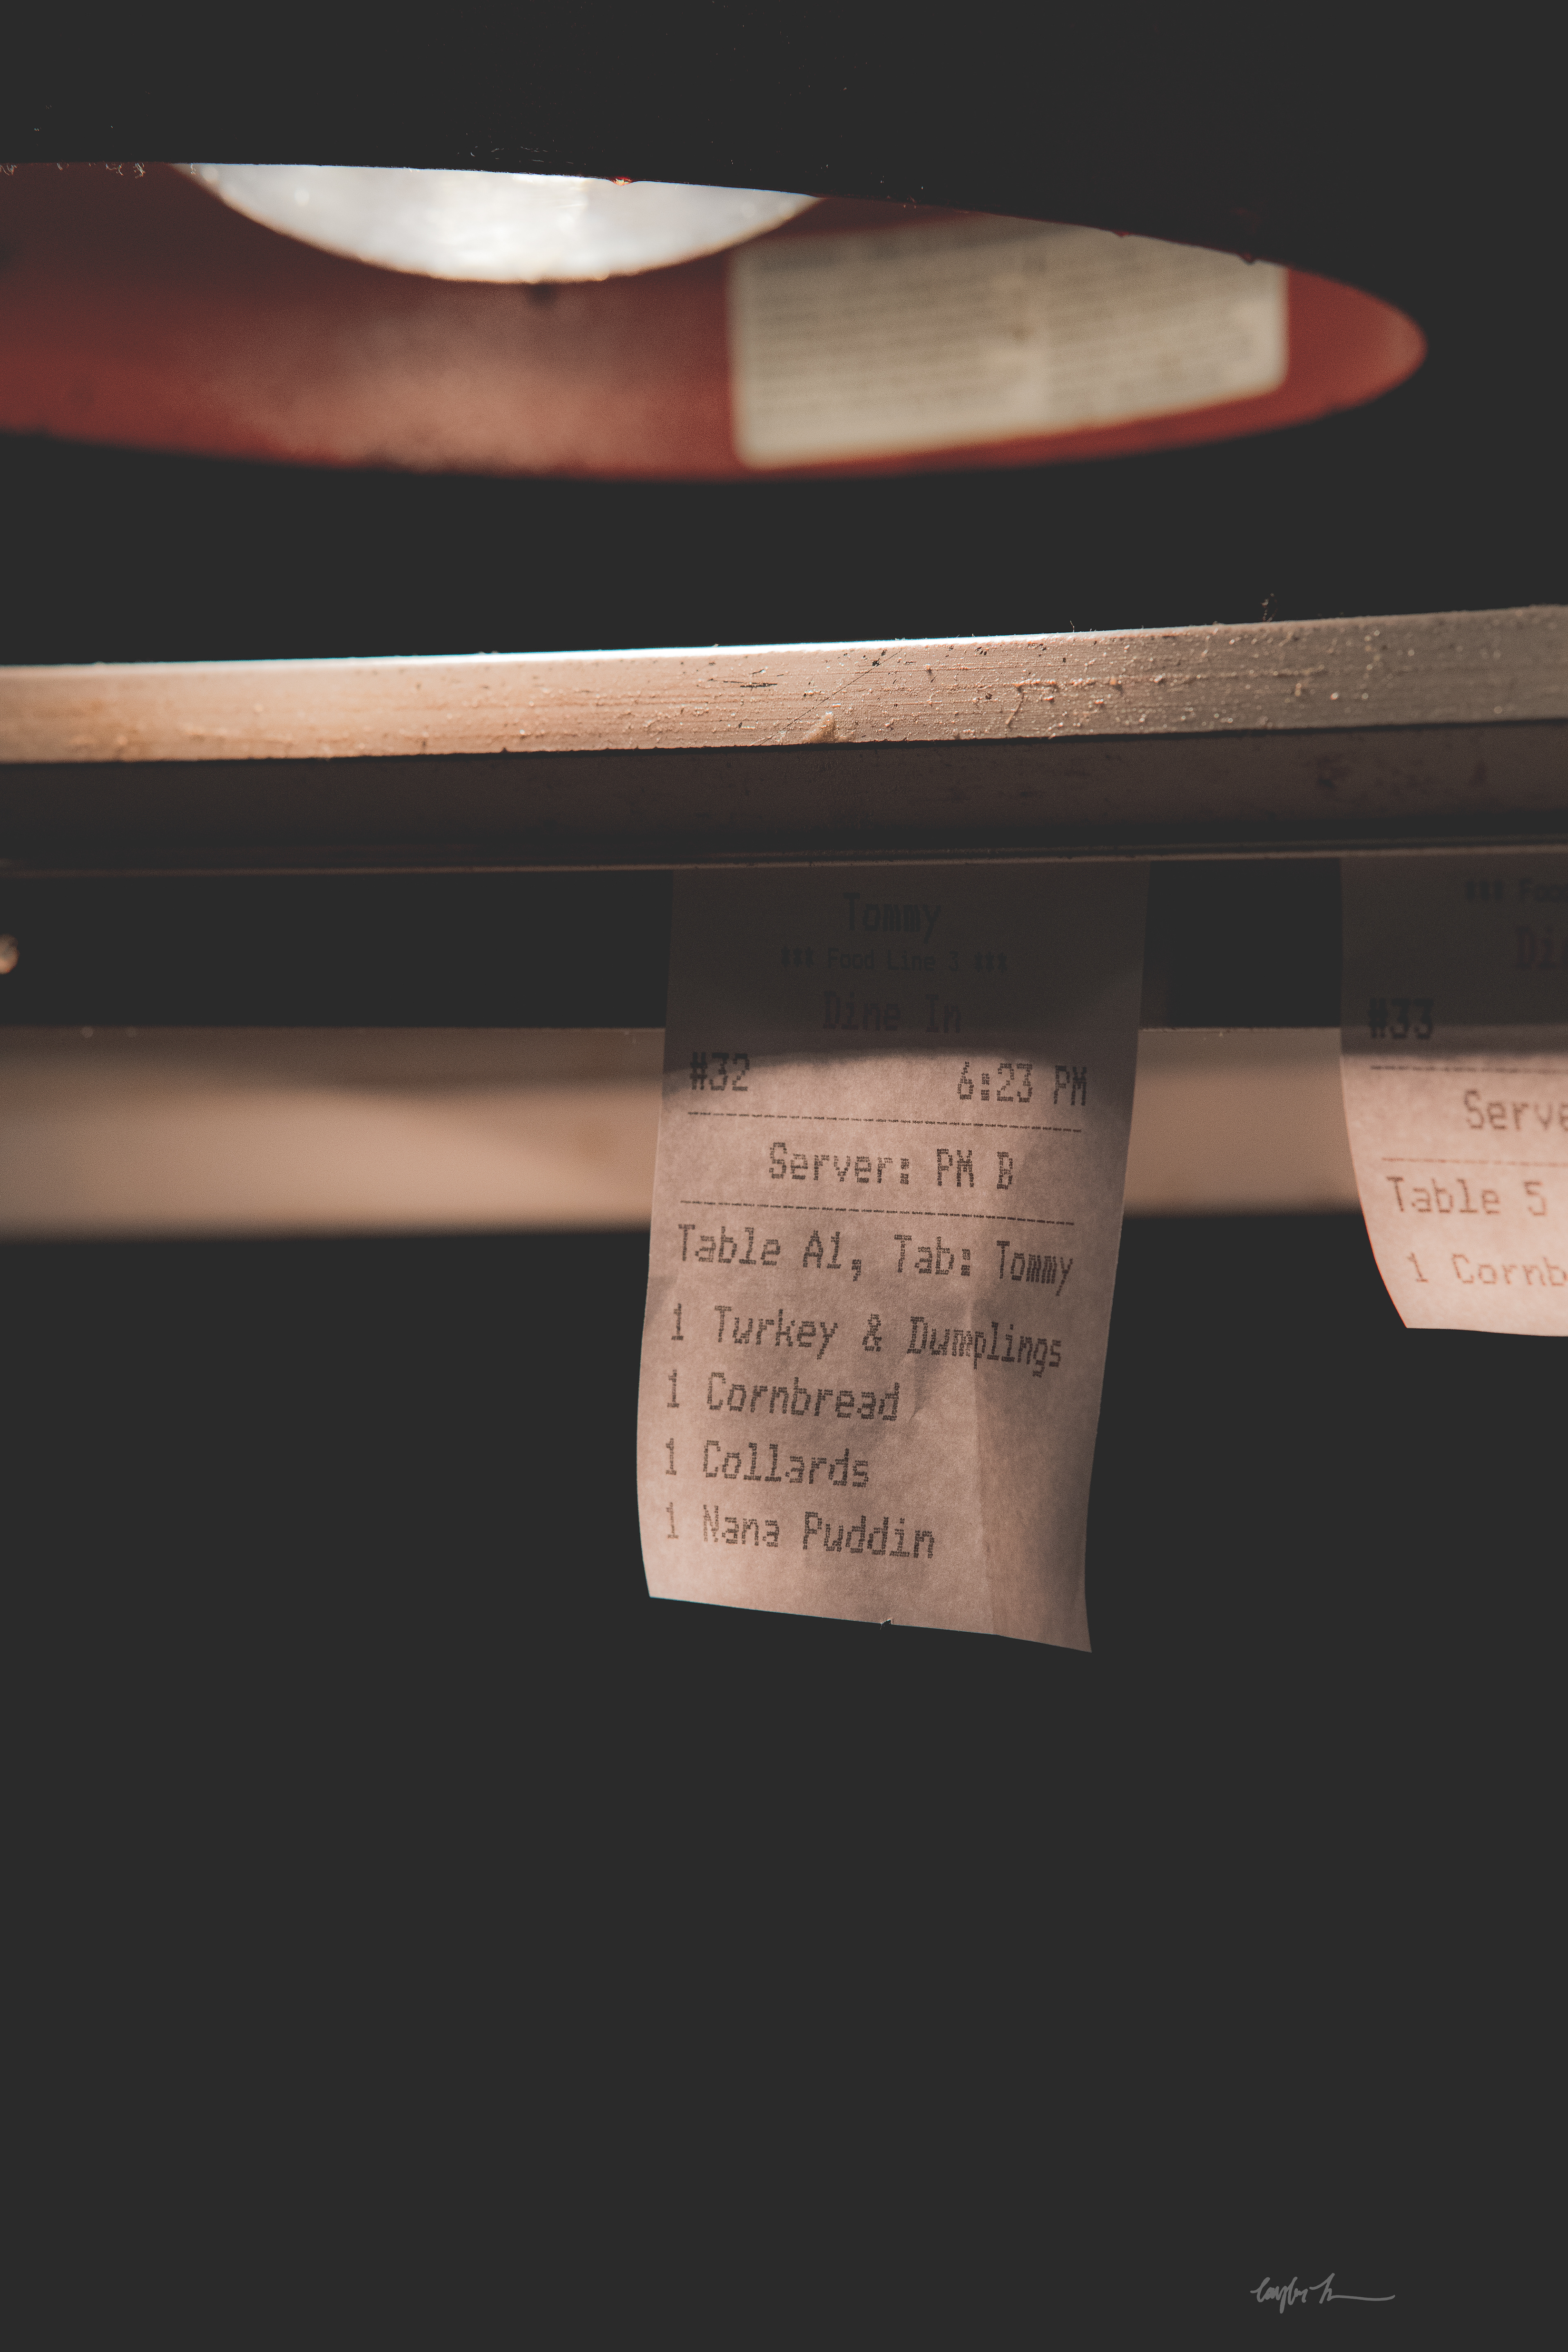 Tommy
*** Food Line 3 ***
Dine In
#32 6:23 PM
Server: PM B
Table A1, Tab: Tommy
1 Turkey & Dumplings
1 Cornbread
1 Collards
1 Nana Puddin
*** Foo
Di
#33
Serve
Table 5
1 Cornb